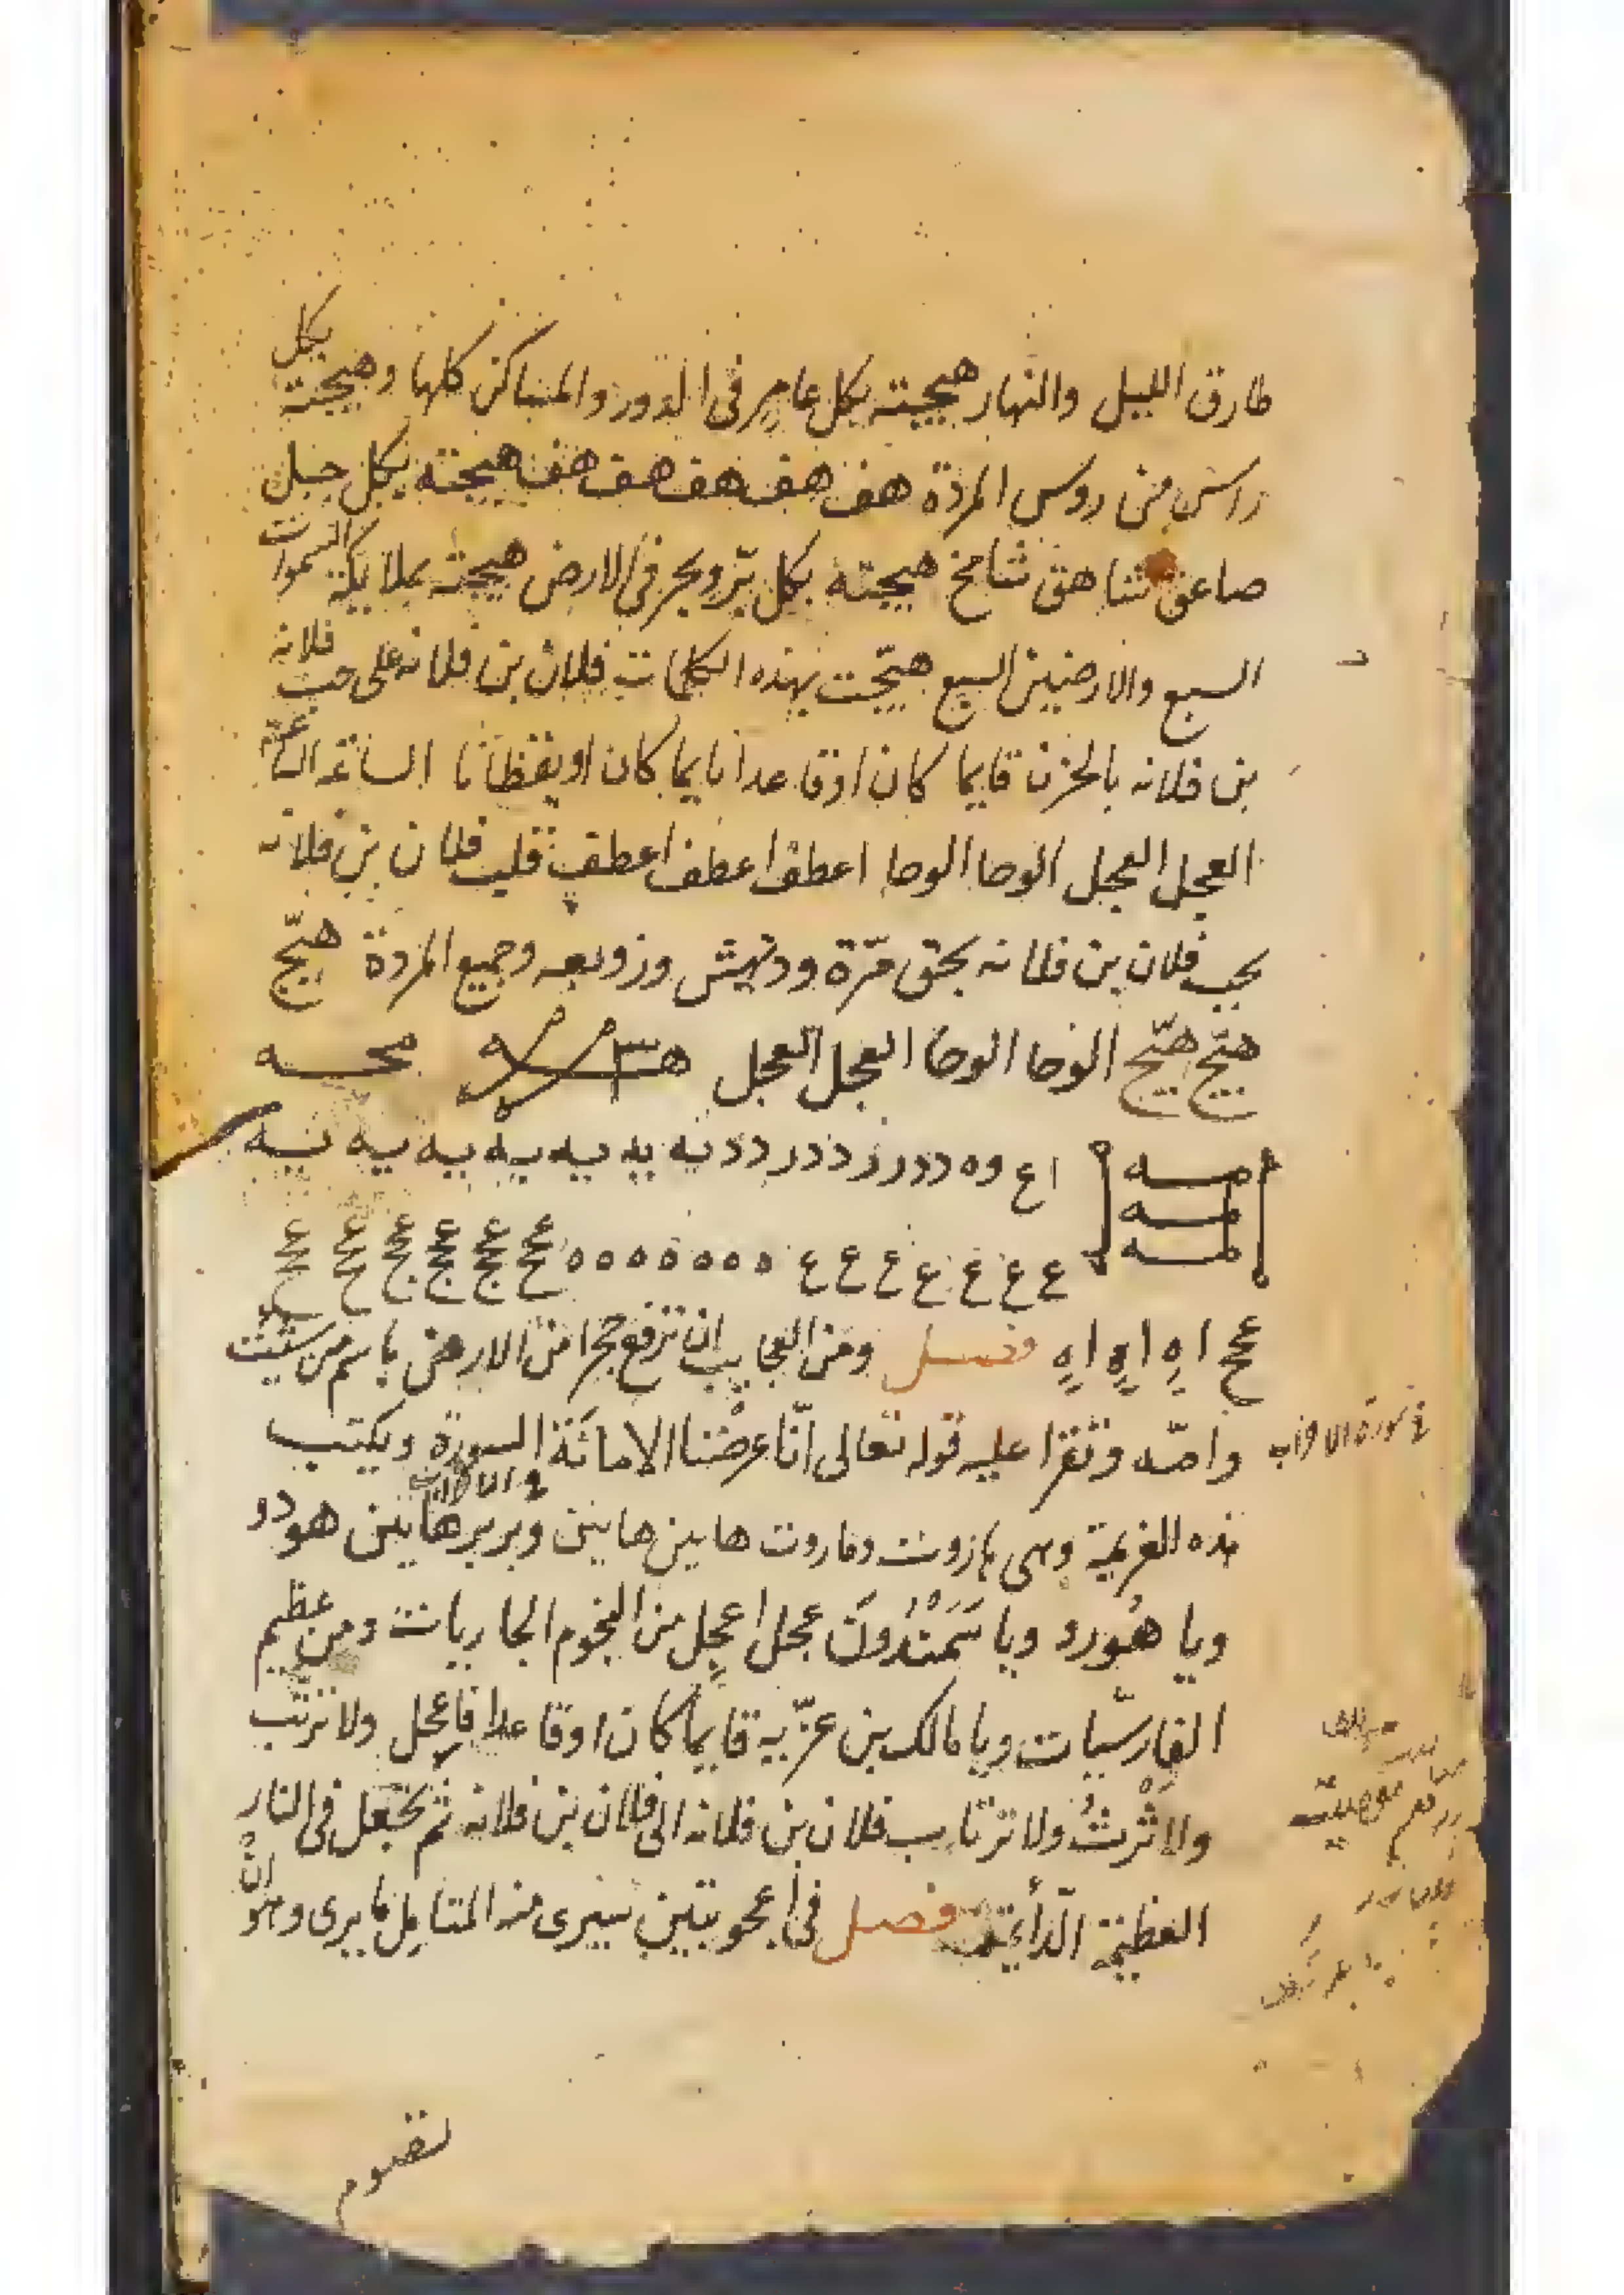 طارق الليل والنهار هيجته بكل عامر فى الدور والمساكن كلها وهيجته بكل
راس من روس المردة هف هف هف هف هف هيجته بكل جبل
صاعق شاهق شامخ هيجته بكل بر وبحر فى الارض هيجته بملايكة السموات
السبع والارضين السبع هيجت بهذه الكلمات فلان بن فلانه على حب فلانه
بن فلانه بالحزن قايما كان اوقاعدا نايما كان او يقظانا الساعة الساعة
العجل العجل الوحا الوحا اعطف اعطف اعطف قلب فلان بن فلانه
بحب فلان بن فلانه بحق مرّة ودنهش وزوبعه وجميع المردة هيّج
هيّج هيّج الوحا الوحا العجل العجل
اع وه ددرزذدرددیه یه یه یه یه یه یه
ع ع ع ع ع ع ع ه ه ه ه ه ه ه عحح عحح عحح عحح عحح عحح
عحح اه اه اه فصل ومن العجايب ان ترفع حجرا من الارض باسم من شيت
وامّه وتقرا عليه قوله تعالى انّا عرضْنا الامانَة السورة ويكتب
فى سورة الاحزاب
هذه العزيمة وهى هاروت وماروت هاين هاينن وبربرهاينن هودو
ويا هُورو ويا سَمَنْدُونَ عجل اعجل من النجوم الجاريات ومن عظيم
الفارسيّات ويا مالك بن عزّيه قايما كان اوقاعدا فاعجل ولا ترتب
ولا ثْرثُ ولا ترتايب فلان بن فلانه الى فلان بن فلانه ثم تجعل فى النار
العظيمة الدّائمة فصل فى اعجوبتين سيرى منه المتامل ما يرى وهو انْ
تقوم